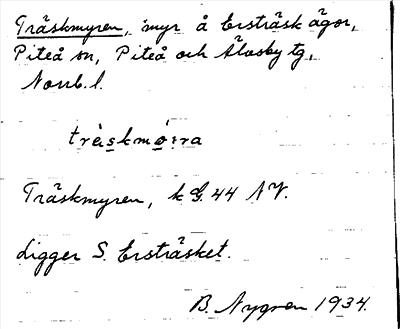 Träskmyren, myr å Ersträsk ägor,
Piteå sn, Piteå och Älvsby tg,
Norrb. l.
träskmøi̯ra
Träskmyren, k G. 44 NV.
Ligger S. Ersträsket.
B. Nygren 1934.